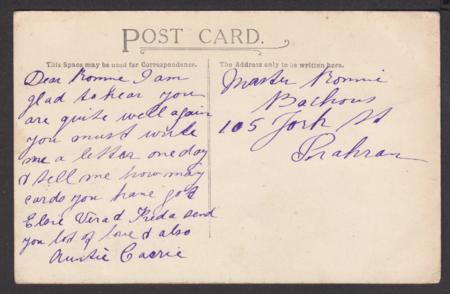 POST CARD.
This Space may be used for Correspondence.
The Address only to be written here.
Dear Ronnie I am
glad to hear you
are quite well again
you must write
me a letter one day
& tell me how may
cards you have got
Elsie Vera & Freda send
you lot of love & also
Auntie Carrie
Master Ronnie
Bachous
105 York St
Prahran